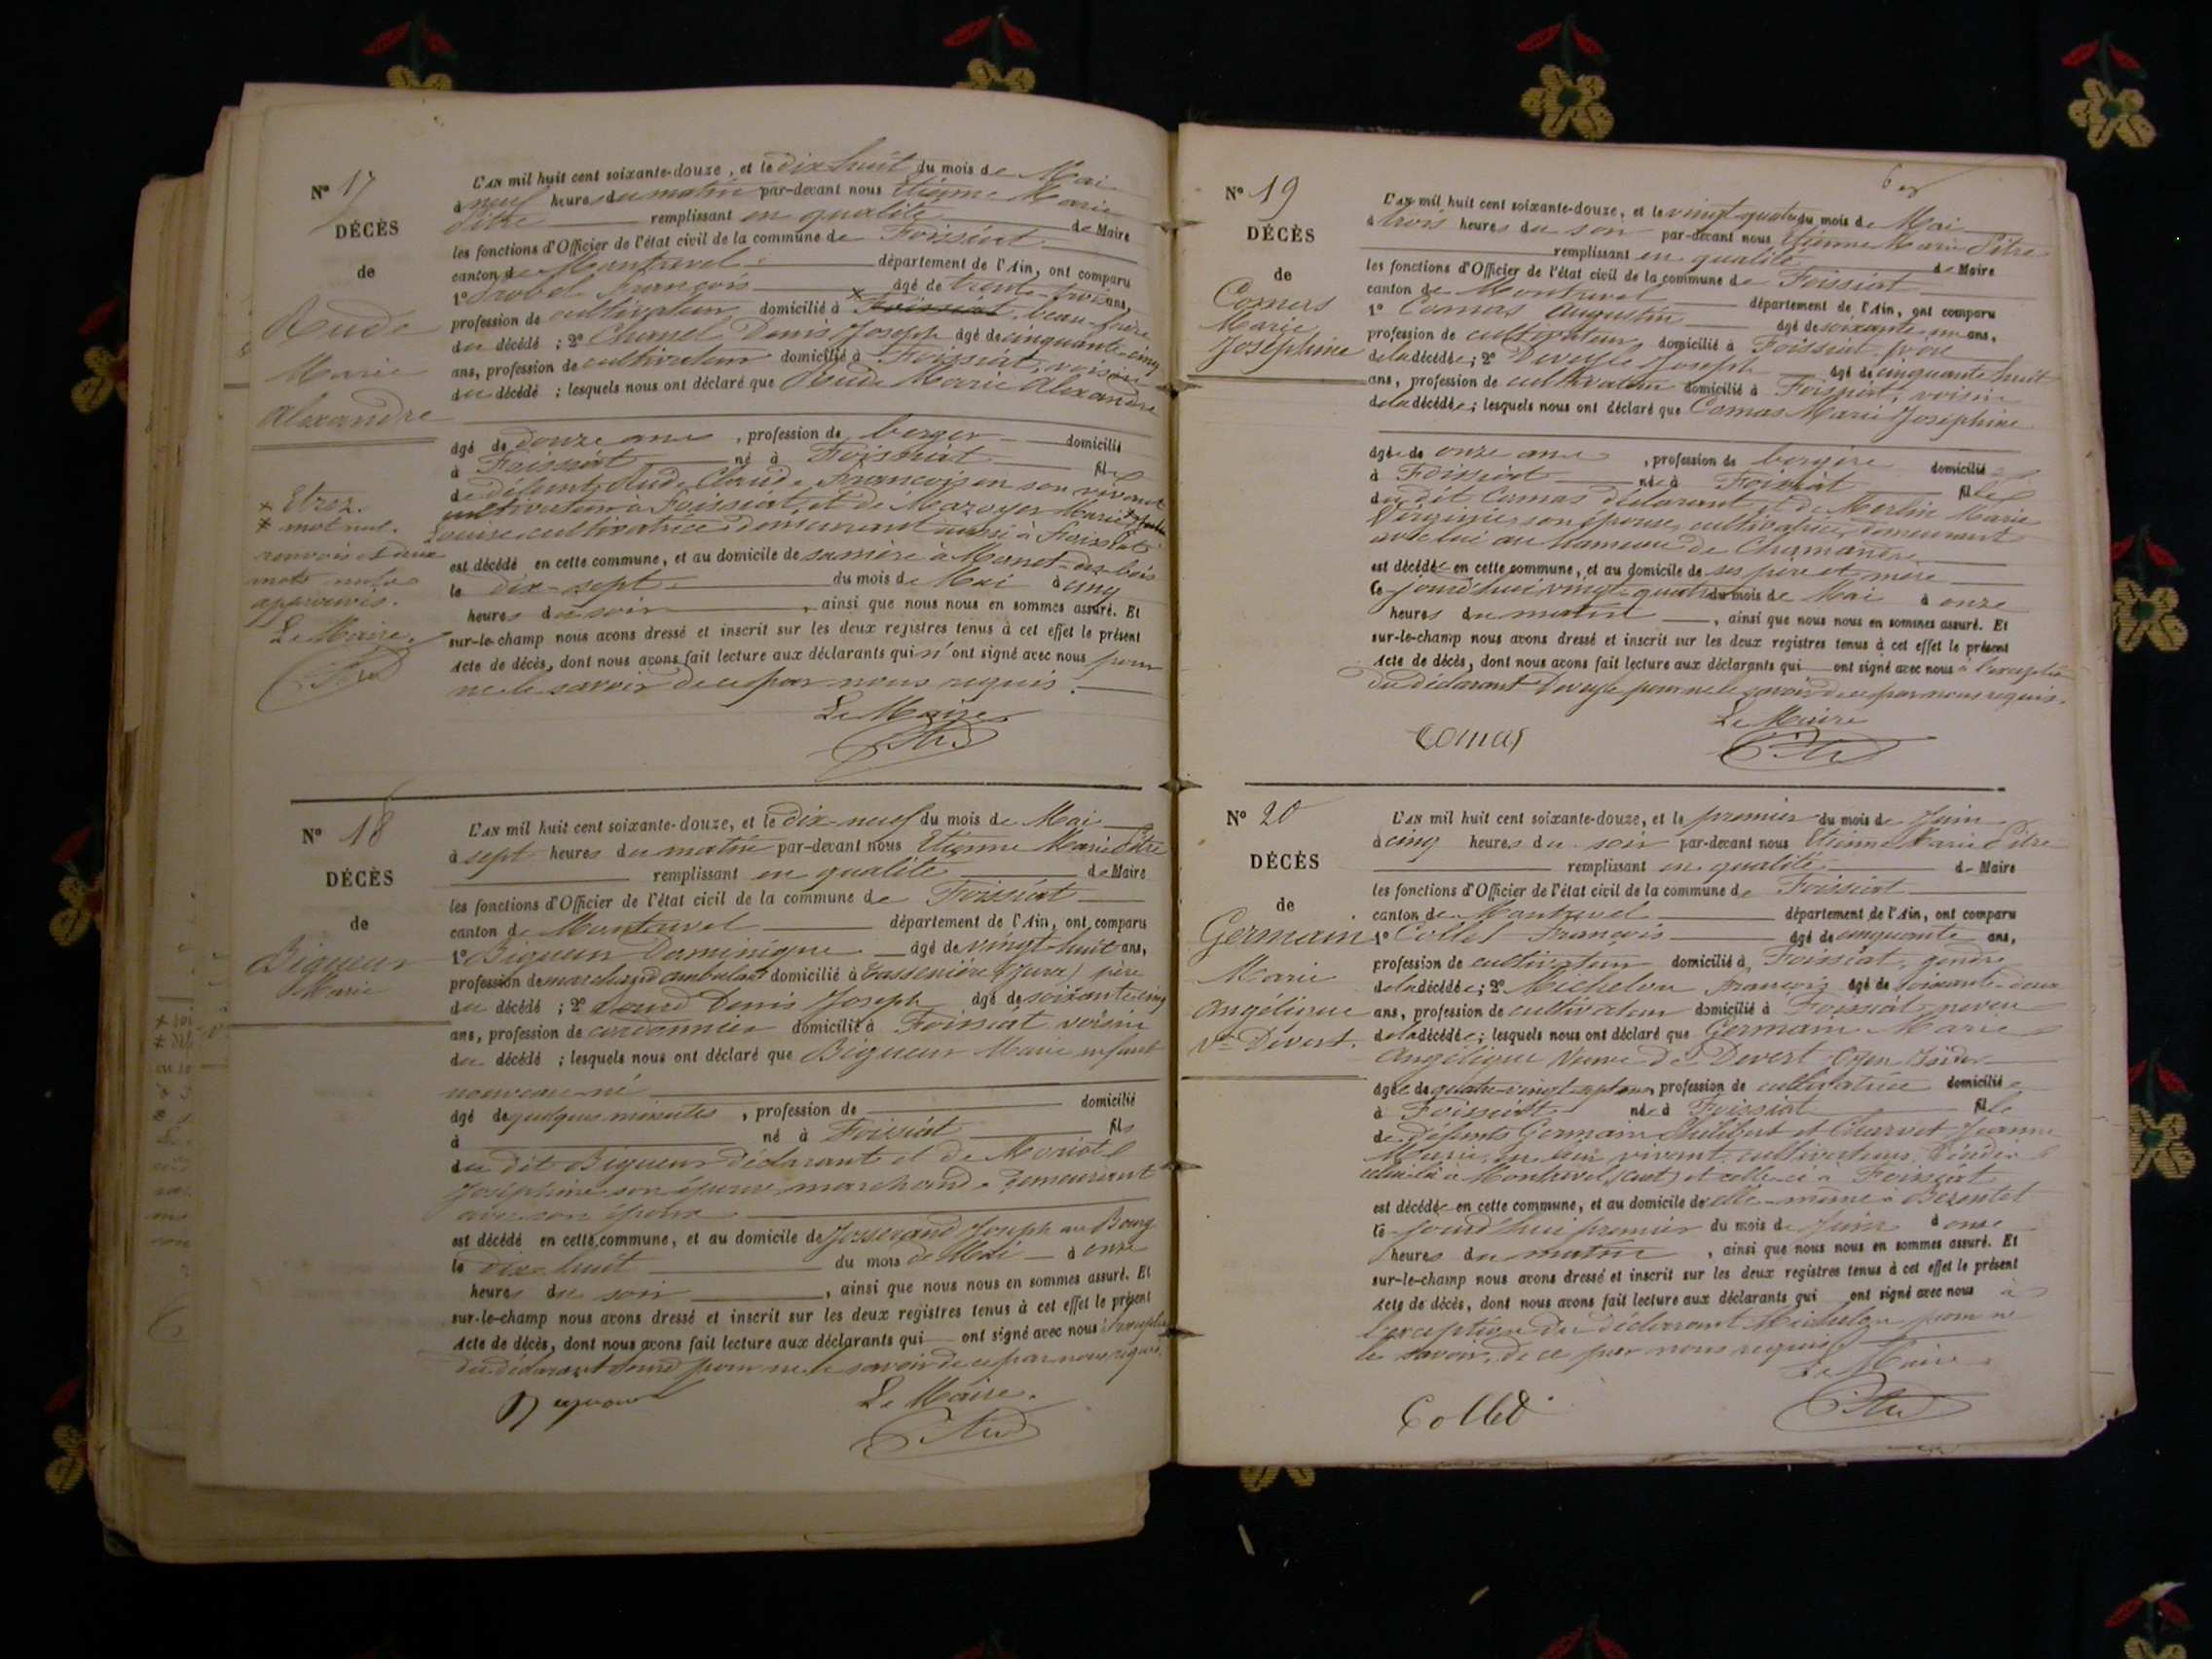 N° 17
DÉCÈS
de
Rude
Marie
Alexandre
× Etrez.
× mot nul.
renvoi et deux
mots nuls
approuvés.
Le Maire,
L'AN mil huit cent soixante-douze, et le dix huit du mois de Mai
à neuf heures du matin par-devant nous Etienne Marie
Pitre remplissant en qualité de Maire
les fonctions d'Officier de l'état civil de la commune de Foissiat
canton de Montrevel département de l'Ain, ont comparu
1° François âgé de trente-trois ans,
profession de cultivateur domicilié à × Foissiat, beau-frère
du décédé ; 2° Chanel Denis Joseph âgé de cinquante-cinq
ans, profession de cultivateur domicilié à Foissiat, voisin
du décédé ; lesquels nous ont déclaré que Rude Marie Alexandre
âgé de douze ans, profession de berger domicilié
à Foissiat né à Foissiat fils
de défunt Rude Claude François en son vivant
cultivateur à Foissiat, et de Mazoyer Marie
Louise cultivatrice demeurant aussi à Foissiat
est décédé en cette commune, et au domicile de sa mère à
le dix-sept du mois de Mai à cinq
heures du soir, ainsi que nous nous en sommes assuré. Et
sur-le-champ nous avons dressé et inscrit sur les deux registres tenus à cet effet le présent
Acte de décès, dont nous avons fait lecture aux déclarants qui n'ont signé avec nous pour
ne le savoir de ce par nous requis.
Le Maire
N° 18
DÉCÈS
de
Bigueur
Marie
L'AN mil huit cent soixante-douze, et le dix-neuf du mois de Mai
à sept heures du matin par-devant nous Etienne Marie Pitre
remplissant en qualité de Maire
les fonctions d'Officier de l'état civil de la commune de Foissiat
canton de Montrevel département de l'Ain, ont comparu
1° Bigueur Dominique âgé de vingt-huit ans,
profession de marchand ambulant domicilié à Tassenière (Jura) père
du décédé ; 2° Denis Joseph âgé de soixante-cinq
ans, profession de cordonnier domicilié à Foissiat voisin
du décédé ; lesquels nous ont déclaré que Bigueur Marie enfant
nouveau-né
âgé de quelques minutes, profession de domicilié
à né à Foissiat fils
du dit Bigueur déclarant et de
Joséphine son épouse marchande demeurant
avec son époux
est décédé en cette commune, et au domicile de Josserand Joseph au Bourg
le dix-huit du mois de Mai à onze
heures du soir, ainsi que nous nous en sommes assuré. Et
sur-le-champ nous avons dressé et inscrit sur les deux registres tenus à cet effet le présent
Acte de décès, dont nous avons fait lecture aux déclarants qui ont signé avec nous à l'exception
du déclarant pour ne le savoir de ce par nous requis.
Le Maire.
N° 19
DÉCÈS
de
Comas
Marie
Joséphine
L'AN mil huit cent soixante-douze, et le vingt-quatre du mois de Mai
à trois heures du soir par-devant nous Etienne Marie Pitre
remplissant en qualité de Maire
les fonctions d'Officier de l'état civil de la commune de Foissiat
canton de Montrevel département de l'Ain, ont comparu
1° Comas Augustin âgé de soixante-un ans,
profession de cultivateur domicilié à Foissiat père
de la décédée ; 2° Joseph âgé de cinquante huit
ans, profession de cultivateur domicilié à Foissiat, voisin
de la décédée ; lesquels nous ont déclaré que Comas Marie Joséphine
âgée de onze ans, profession de bergère domiciliée
à Foissiat née à Foissiat fille
du dit Comas déclarant et de Merlin Marie
Virginie son épouse, cultivatrice demeurant
avec lui au hameau de
est décédée en cette commune, et au domicile de ses père et mère
le jourd'hui vingt-quatre du mois de Mai à onze
heures du matin, ainsi que nous nous en sommes assuré. Et
sur-le-champ nous avons dressé et inscrit sur les deux registres tenus à cet effet le présent
Acte de décès, dont nous avons fait lecture aux déclarants qui ont signé avec nous à l'exception
du déclarant pour ne le savoir de ce par nous requis.
Le Maire
Comas
N° 20
DÉCÈS
de
Germain
Marie
Angélique
Ve Devert.
L'AN mil huit cent soixante-douze, et le premier du mois de Juin
à cinq heures du soir par-devant nous Etienne Marie Pitre
remplissant en qualité de Maire
les fonctions d'Officier de l'état civil de la commune de Foissiat
canton de Montrevel département de l'Ain, ont comparu
1° Collet François âgé de cinquante ans,
profession de cultivateur domicilié à Foissiat, gendre
de la décédée ; 2° Michelon François âgé de soixante-deux
ans, profession de cultivateur domicilié à Foissiat neveu
de la décédée ; lesquels nous ont déclaré que Germain Marie
Angélique veuve de Devert
âgée de quatre-vingt-sept ans, profession de cultivatrice domiciliée
à Foissiat née à Foissiat fille
de défunts Germain Philibert et Charvet Jeanne
Marie, en leur vivant cultivateurs
celui-ci à Montrevel (Ain) et celle-ci à Foissiat
est décédée en cette commune, et au domicile de elle-même à
le jourd'hui premier du mois de Juin à onze
heures du matin, ainsi que nous nous en sommes assuré. Et
sur-le-champ nous avons dressé et inscrit sur les deux registres tenus à cet effet le présent
Acte de décès, dont nous avons fait lecture aux déclarants qui ont signé avec nous à
l'exception du déclarant Michelon pour ne
le savoir, de ce par nous requis.
Le Maire
Collet